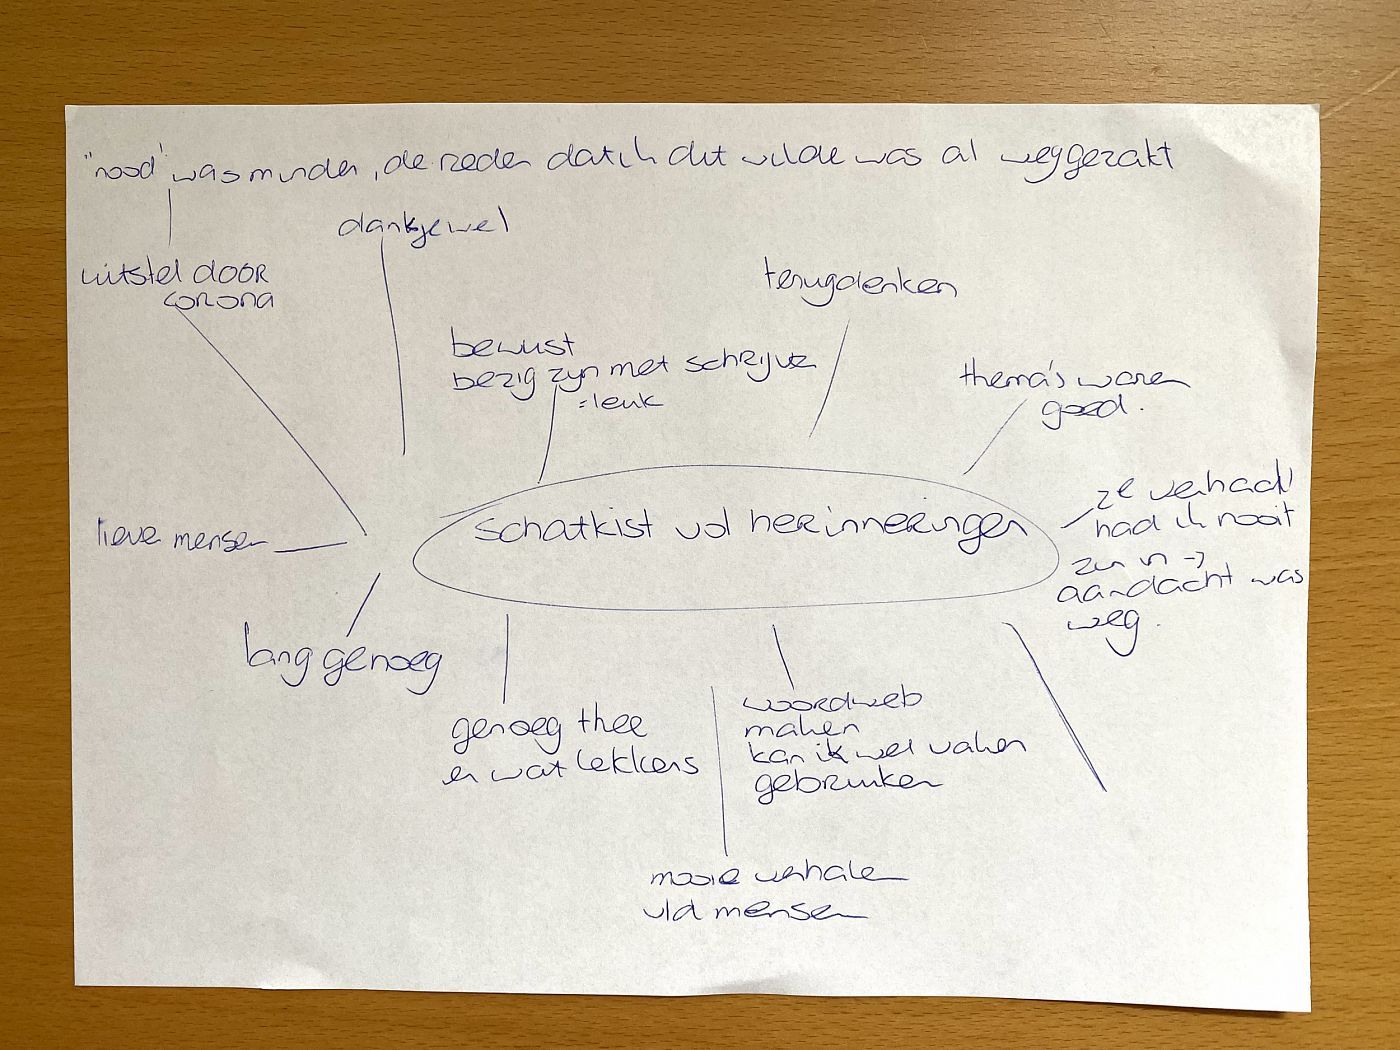 "nood" was minder, de reden dat ik dit wilde was al weggezakt
dankjewel
uitstel door
corona
terugdenken
bewust
bezig zijn met schrijven
= leuk
thema's waren
goed.
schatkist vol herinneringen
ze verhaal
had ik nooit
zin in →
aandacht was
weg.
lieve mensen
lang genoeg
genoeg thee
en wat lekkers
woordweb
maken
kan ik wel vaker
gebruiken
mooie verhalen
v/d mensen